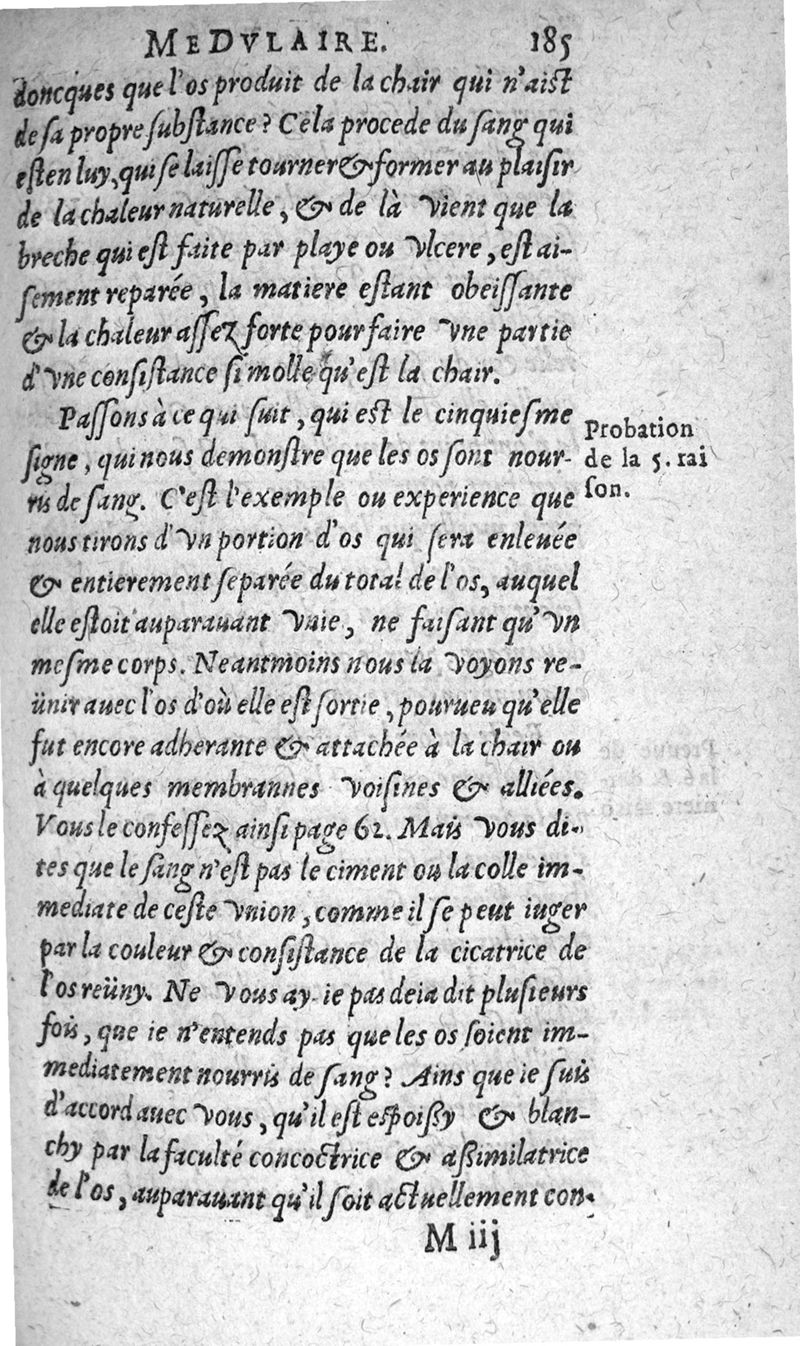 MEDVLAIRE. 185
doncques que l'os produit de la chair qui n'aist
de sa propre substance? Cela procede du sang qui
est en luy, qui se laisse tourner & former au plaisir
de la chaleur naturelle, & de là vient que la
breche qui est faite par playe ou vlcere, est ai-
sement reparée, la matiere estant obeissante
& la chaleur assez forte pour faire vne partie
d'vne consistance si molle qu'est la chair.
Passons à ce qui suit, qui est le cinquiesme
signe, qui nous demonstre que les os sont nour-
ris de sang. C'est l'exemple ou experience que
nous tirons d'vn portion d'os qui sera enleuée
& entierement separée du total de l'os, auquel
elle estoit auparauant vnie, ne faisant qu'vn
mesme corps. Neantmoins nous la voyons re-
ünir auec l'os d'où elle est sortie, pourueu qu'elle
fut encore adherante & attachée à la chair ou
à quelques membrannes voisines & alliées.
Vous le confessez ainsi page 62. Mais vous di-
tes que le sang n'est pas le ciment ou la colle im-
mediate de ceste vnion, comme il se peut iuger
par la couleur & consistance de la cicatrice de
l'os reüny. Ne vous ay-ie pas deia dit plusieurs
fois, que ie n'entends pas que les os soient im-
mediatement nourris de sang? Ains que ie suis
d'accord auec vous, qu'il est espoissy & blan-
chy par la faculté concoctrice & assimilatrice
de l'os, auparauant qu'il soit actuellement con-
M iij
Probation
de la 5. rai
son.